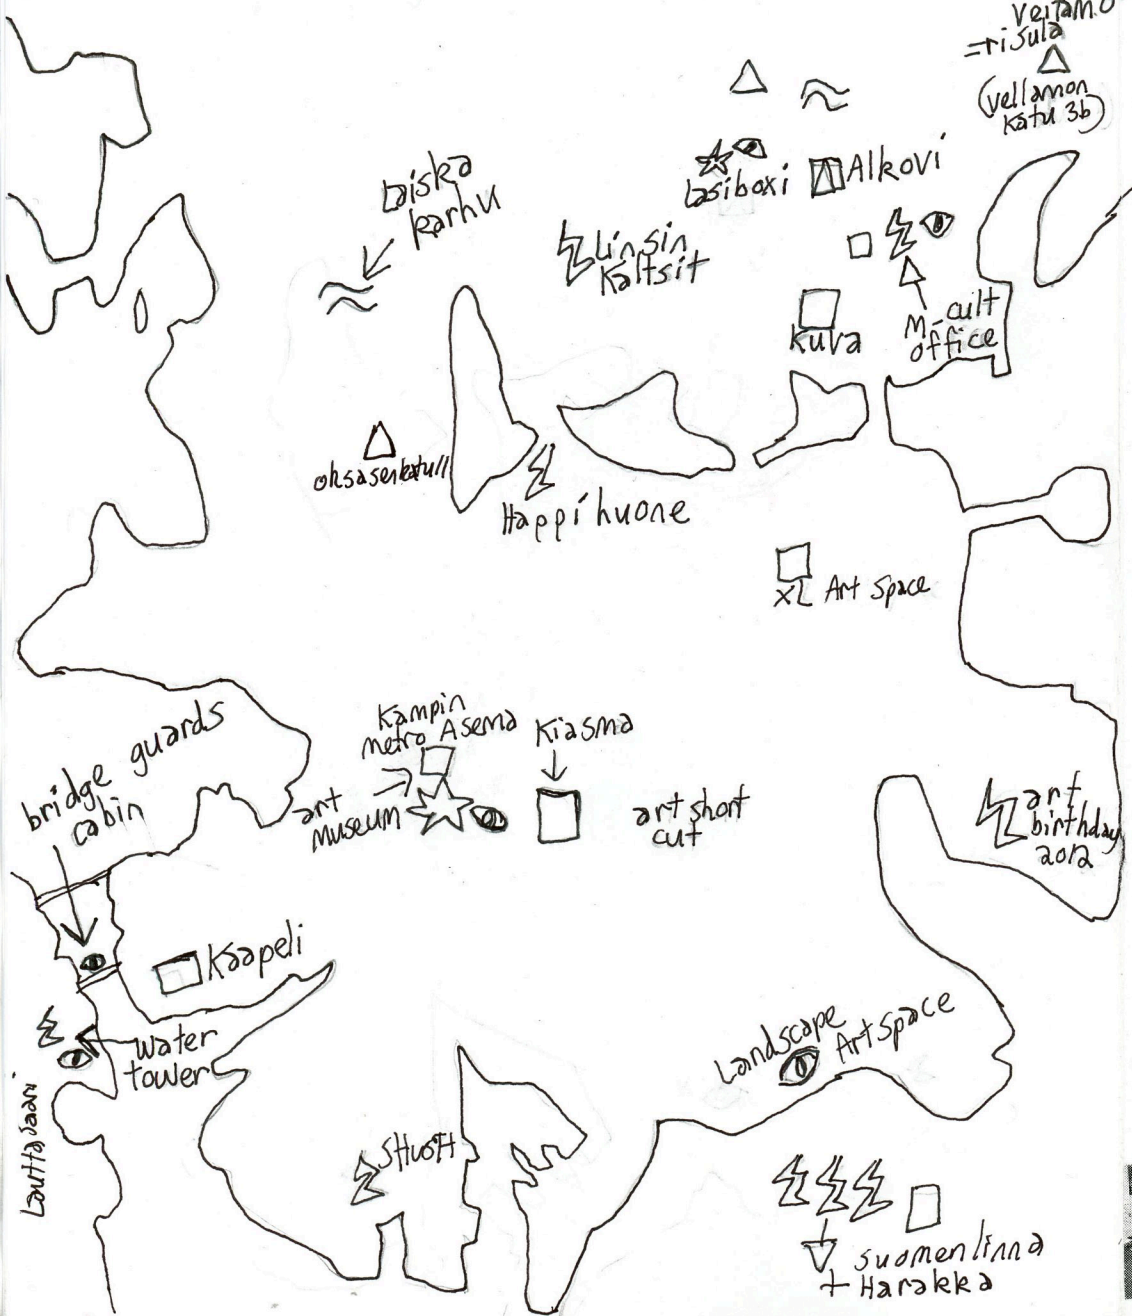 =risula
(vellamon
katu 3b)
Laiska
karhu
Lasiboxi
Alkovi
Linsin
Kaltsit
M-cult
office
Kuva
Happihuone
XL Art Space
Kampin
metro Asema
Kiasma
art
museum
art short
cut
art
birthday
2012
bridge guards
cabin
Kaapeli
water
tower
Landscape
Art Space
Lauttasaari
suomenlinna
+ Harakka